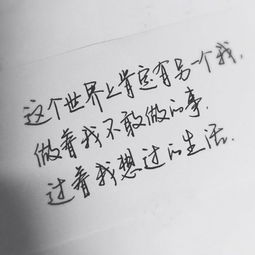 这个世界上肯定有另一个我,
做着我不敢做的事,
过着我想过的生活.